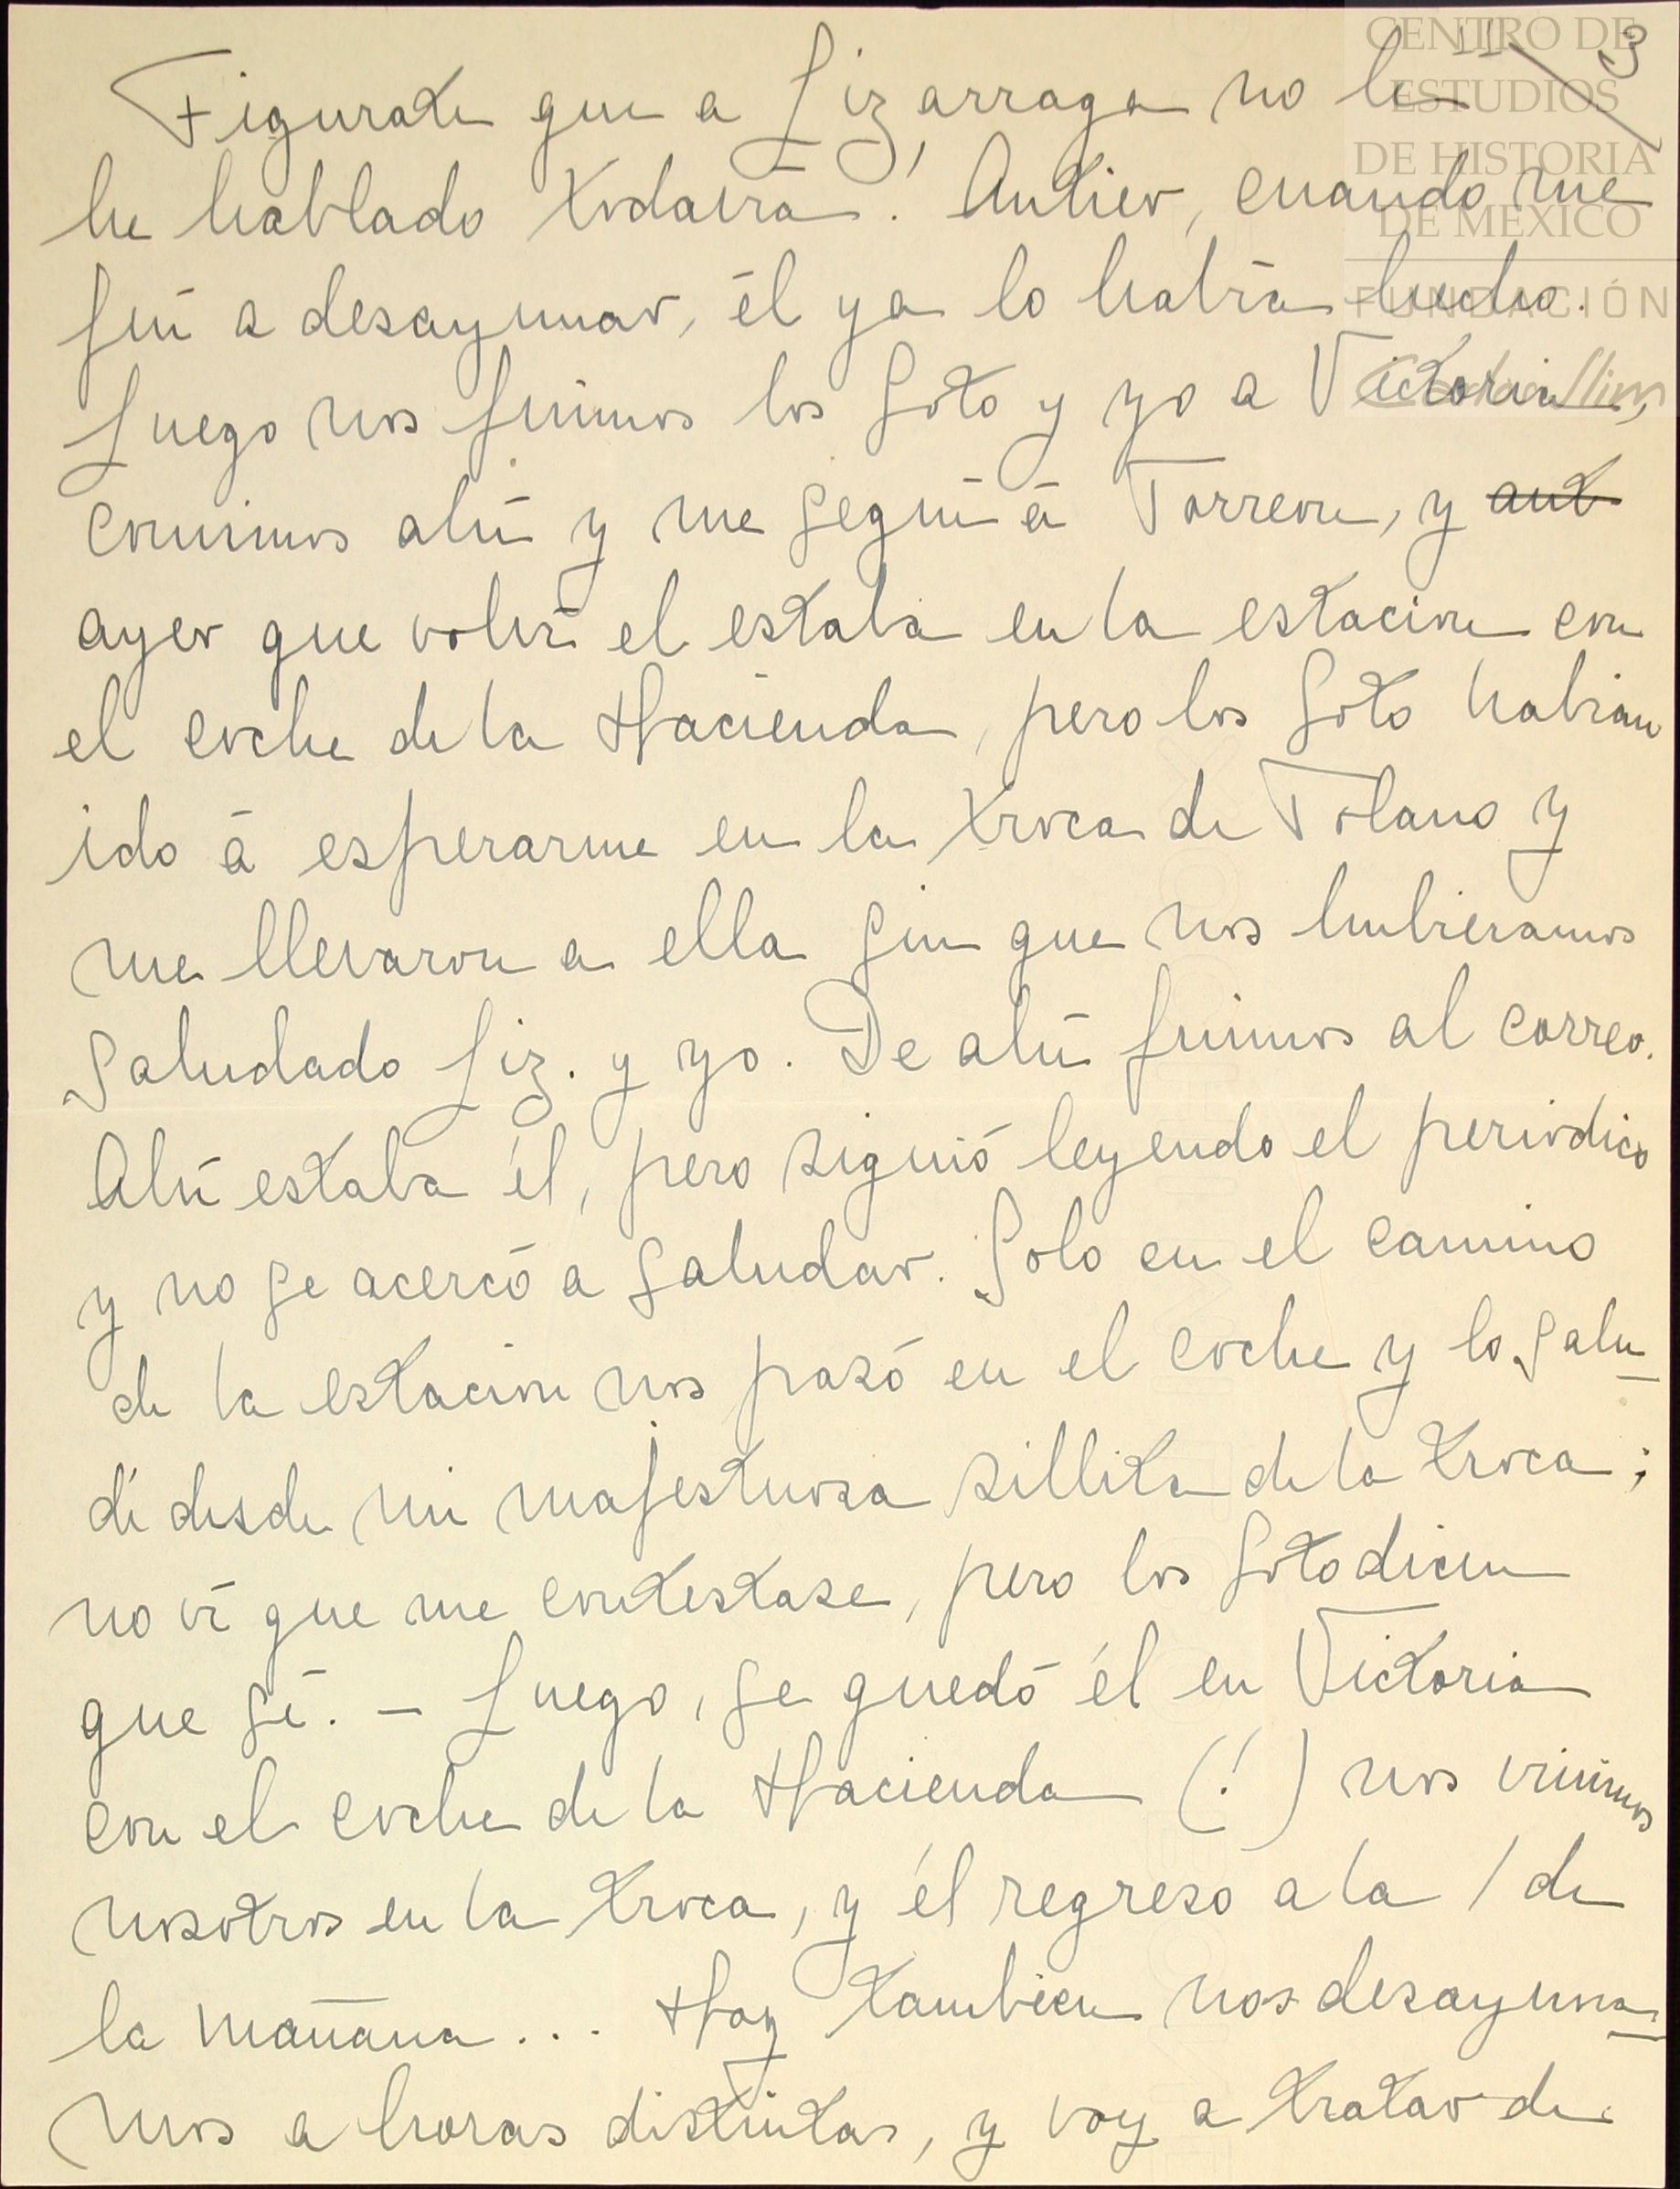 CENTRO DE
ESTUDIOS
DE HISTORIA
DE MÉXICO
FUNDACIÓN
Carlos Slim
III 3
Figurate que a Lizárraga no le
he hablado todavía! Antier, cuando me
fuí a desayunar, él ya lo había hecho.
Luego nos fuimos los Soto y yo a Victoria,
comimos ahí y me seguí á Torreon, y ant
ayer que volví el estaba en la estacion con
el coche de la Hacienda, pero los Soto habian
ido á esperarme en la troca de Tolano y
me llevaron a ella sin que nos hubieramos
saludado Liz. y yo. De ahí fuimos al correo.
Ahí estaba él, pero siguió leyendo el periodico
y no se acercó a saludar. Solo en el camino
de la estacion nos pasó en el coche y lo salu-
dé desde mi majestuosa sillita de la troca;
no ví que me contestase, pero los Soto dicen
que sí. – Luego, se quedó él en Victoria
con el coche de la Hacienda (!) nos vinimos
nosotros en la troca, y él regresó a la 1 de
la mañana... Hoy tambien nos desayuna-
mos a horas distintas, y voy a tratar de